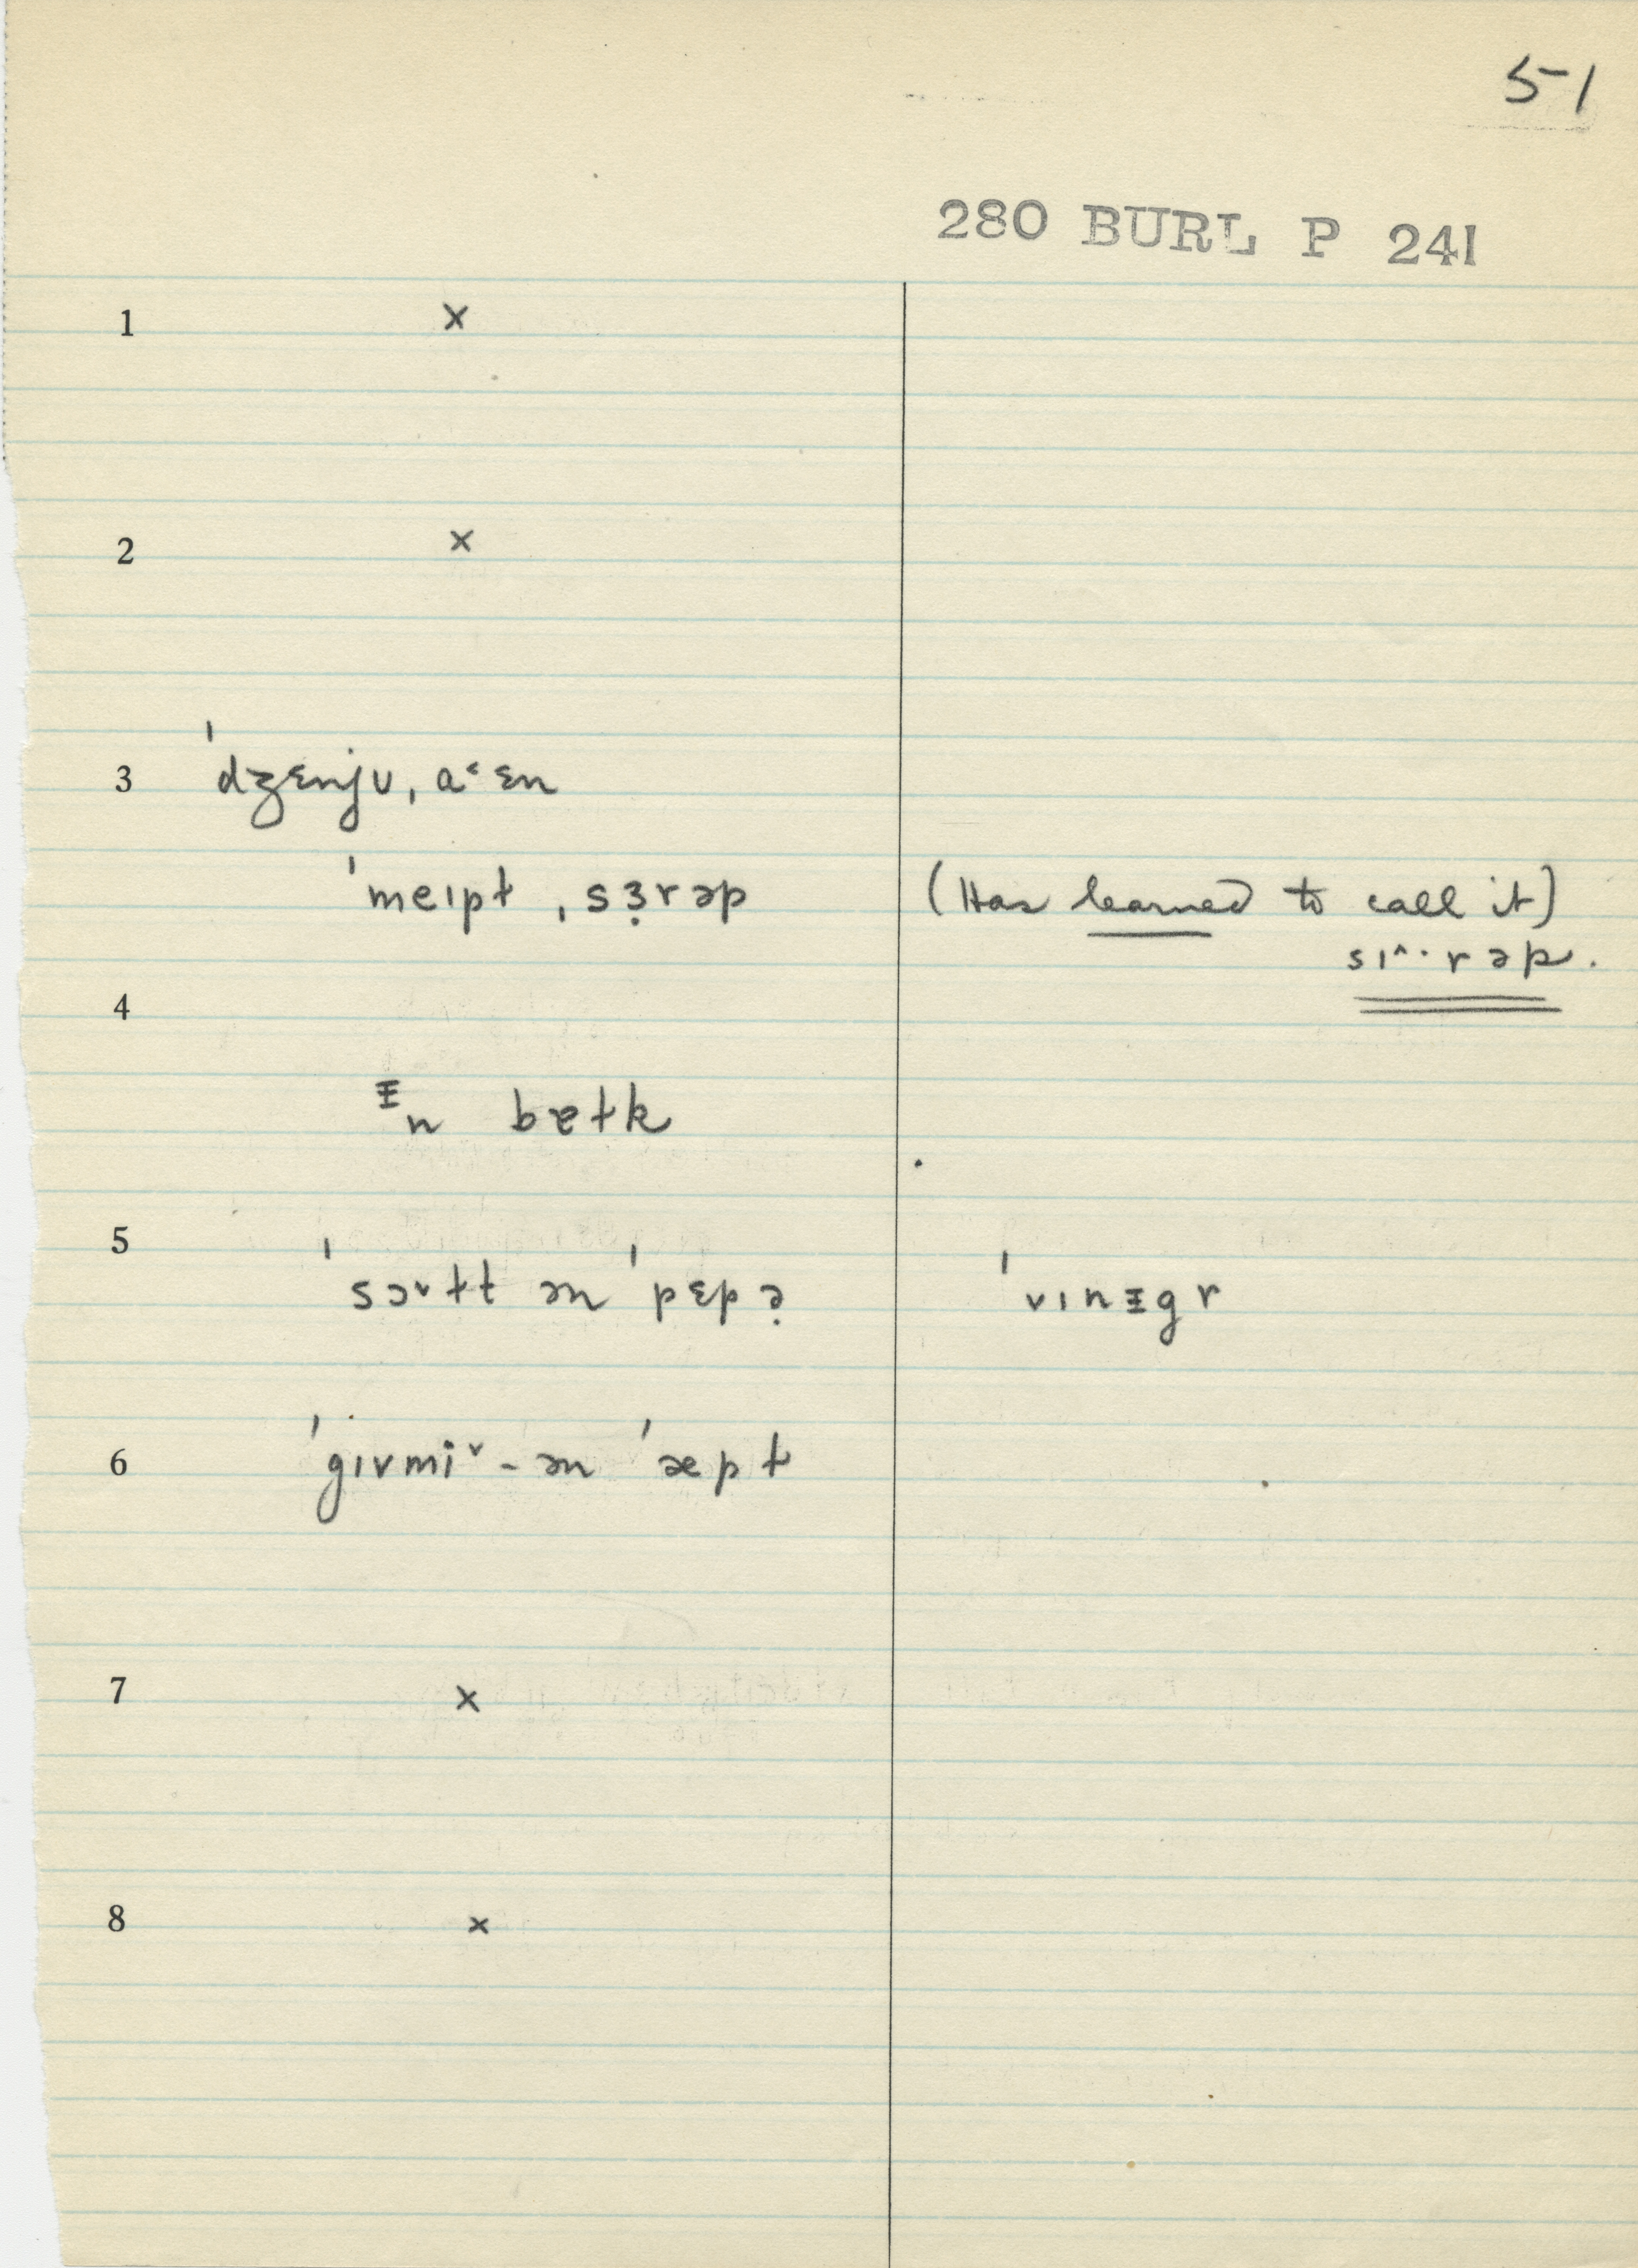 51
280 BURL P 241
1 x
2 x
3 ˈdʒɛnjʊ, a˂ɛn
ˈmeɪpɫ ˌsɜ̣rəp (Has learned to call it)
sɪ^·rəp.
4
ᵻn bɐɫk
5 ˈsɔ˅ɫt ən ˈpɛpə̣ ˈvɪnᵻgr
6 ˈgɪvmi˅-ən ˈæpɫ
7 x
8 x